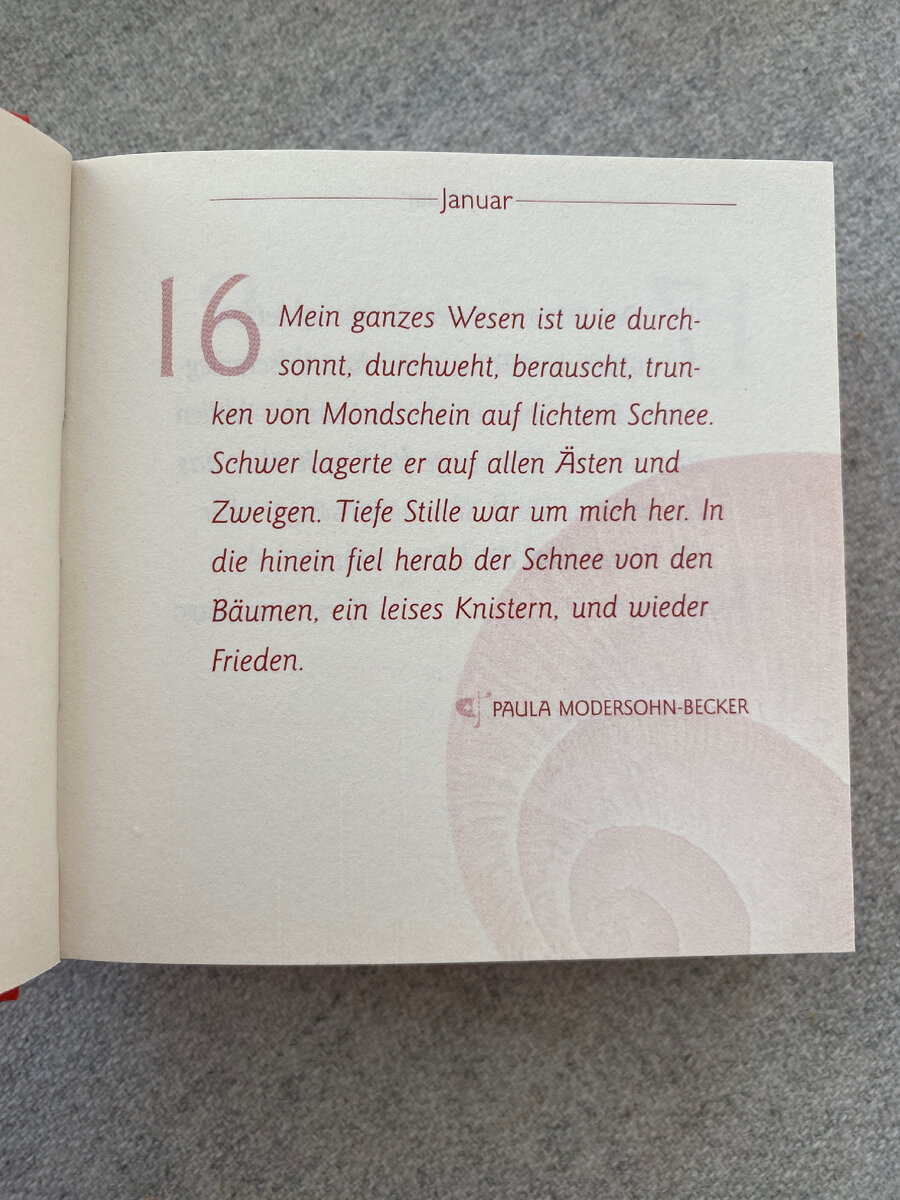 Januar
16
Mein ganzes Wesen ist wie durch-
sonnt, durchweht, berauscht, trun-
ken von Mondschein auf lichtem Schnee.
Schwer lagerte er auf allen Ästen und
Zweigen. Tiefe Stille war um mich her. In
die hinein fiel herab der Schnee von den
Bäumen, ein leises Knistern, und wieder
Frieden.
PAULA MODERSOHN-BECKER